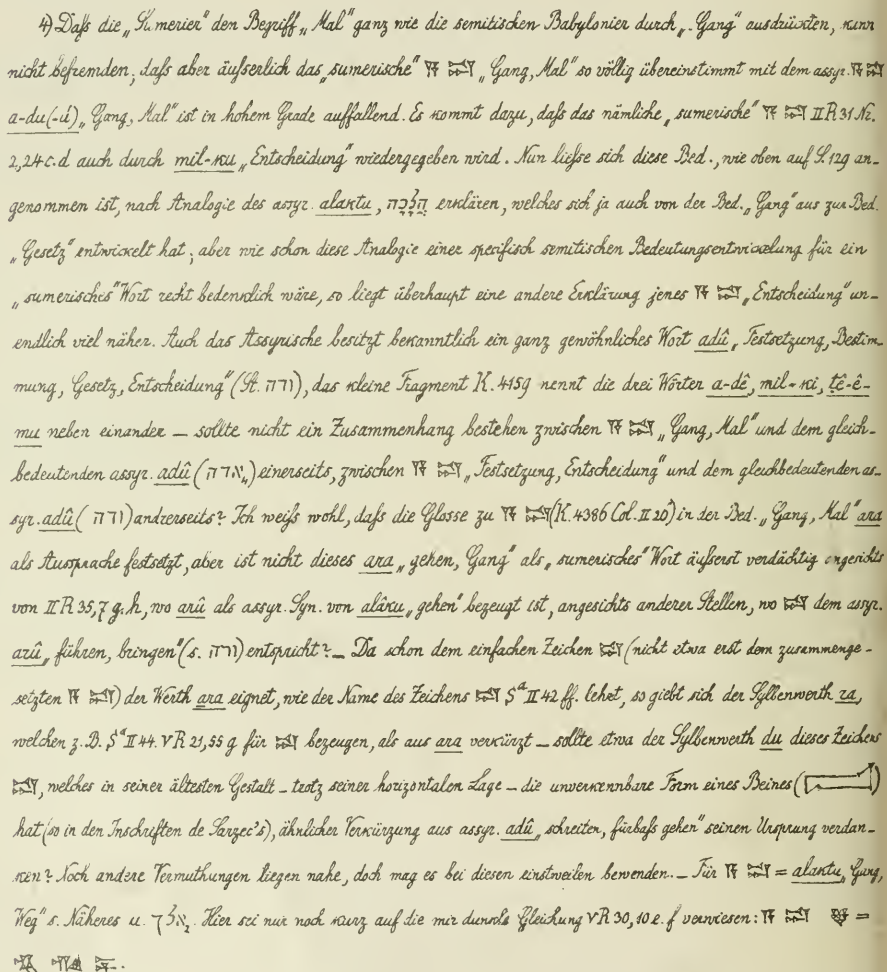 4) Daſs die „Sumerier“ den Begriff „Mal“ ganz wie die semitischen Babylonier durch „Gang“ ausdrückten, kann
nicht befremden; daſs aber äuſserlich das „sumerische“ 𒀀𒁺 „Gang, Mal“ so völlig übereinstimmt mit dem assyr. 𒀀𒁺
a-du(-ú) „Gang, Mal“ ist in hohem Grade auffallend. Es kommt dazu, daſs das nämliche „sumerische“ 𒀀𒁺 II R 31 Nr.
2,24 c.d auch durch mil-ku „Entscheidung“ wiedergegeben wird. Nun lieſse sich diese Bed., wie oben auf S. 129 an-
genommen ist, nach Analogie des assyr. alaktu, הֲלָכָה erklären, welches sich ja auch von der Bed. „Gang“ aus zur Bed.
„Gesetz“ entwickelt hat; aber wie schon diese Analogie einer specifisch semitischen Bedeutungsentwickelung für ein
„sumerisches“ Wort recht bedenklich wäre, so liegt überhaupt eine andere Erklärung jenes 𒀀𒁺 „Entscheidung“ un-
endlich viel näher. Auch das Assyrische besitzt bekanntlich ein ganz gewöhnliches Wort adû „Festsetzung, Bestim-
mung, Gesetz, Entscheidung“ (St. ודה), das kleine Fragment K. 4159 nennt die drei Wörter a-dê, mil-ki, ṭê-ê-
mu neben einander — sollte nicht ein Zusammenhang bestehen zwischen 𒀀𒁺 „Gang, Mal“ und dem gleich-
bedeutenden assyr. adû (אדה) einerseits, zwischen 𒀀𒁺 „Festsetzung, Entscheidung“ und dem gleichbedeutenden as-
syr. adû (ודה) andrerseits? Ich weiſs wohl, daſs die Glosse zu 𒀀𒁺 (K. 4386 Col. II 20) in der Bed. „Gang, Mal“ ara
als Aussprache festsetzt, aber ist nicht dieses ara „gehen, Gang“ als „sumerisches“ Wort äuſserst verdächtig angesichts
von II R 35,7 g.h, wo arû als assyr. Syn. von alâku „gehen“ bezeugt ist, angesichts anderer Stellen, wo 𒁺 dem assyr.
arû „führen, bringen“ (s. ורה) entspricht? — Da schon dem einfachen Zeichen 𒁺 (nicht etwa erst dem zusammenge-
setzten 𒀀𒁺) der Werth ara eignet, wie der Name des Zeichens 𒁺 Sᵃ II 42 ff. lehrt, so giebt sich der Sylbenwerth ra,
welchen z. B. Sᵃ II 44. V R 21,55 g für 𒁺 bezeugen, als aus ara verkürzt — sollte etwa der Sylbenwerth du dieses Zeichens
𒁺, welches in seiner ältesten Gestalt — trotz seiner horizontalen Lage — die unverkennbare Form eines Beines ( )
hat (so in den Inschriften de Sarzec's), ähnlicher Verkürzung aus assyr. adû „schreiten, fürbaſs gehen“ seinen Ursprung verdan-
ken? Noch andere Vermuthungen liegen nahe, doch mag es bei diesen einstweilen bewenden. — Für 𒀀𒁺 = alaktu „Gang,
Weg“ s. Näheres u. אלך. Hier sei nur noch kurz auf die mir dunkele Gleichung V R 30,10 e. f verwiesen: 𒀀𒁺 =